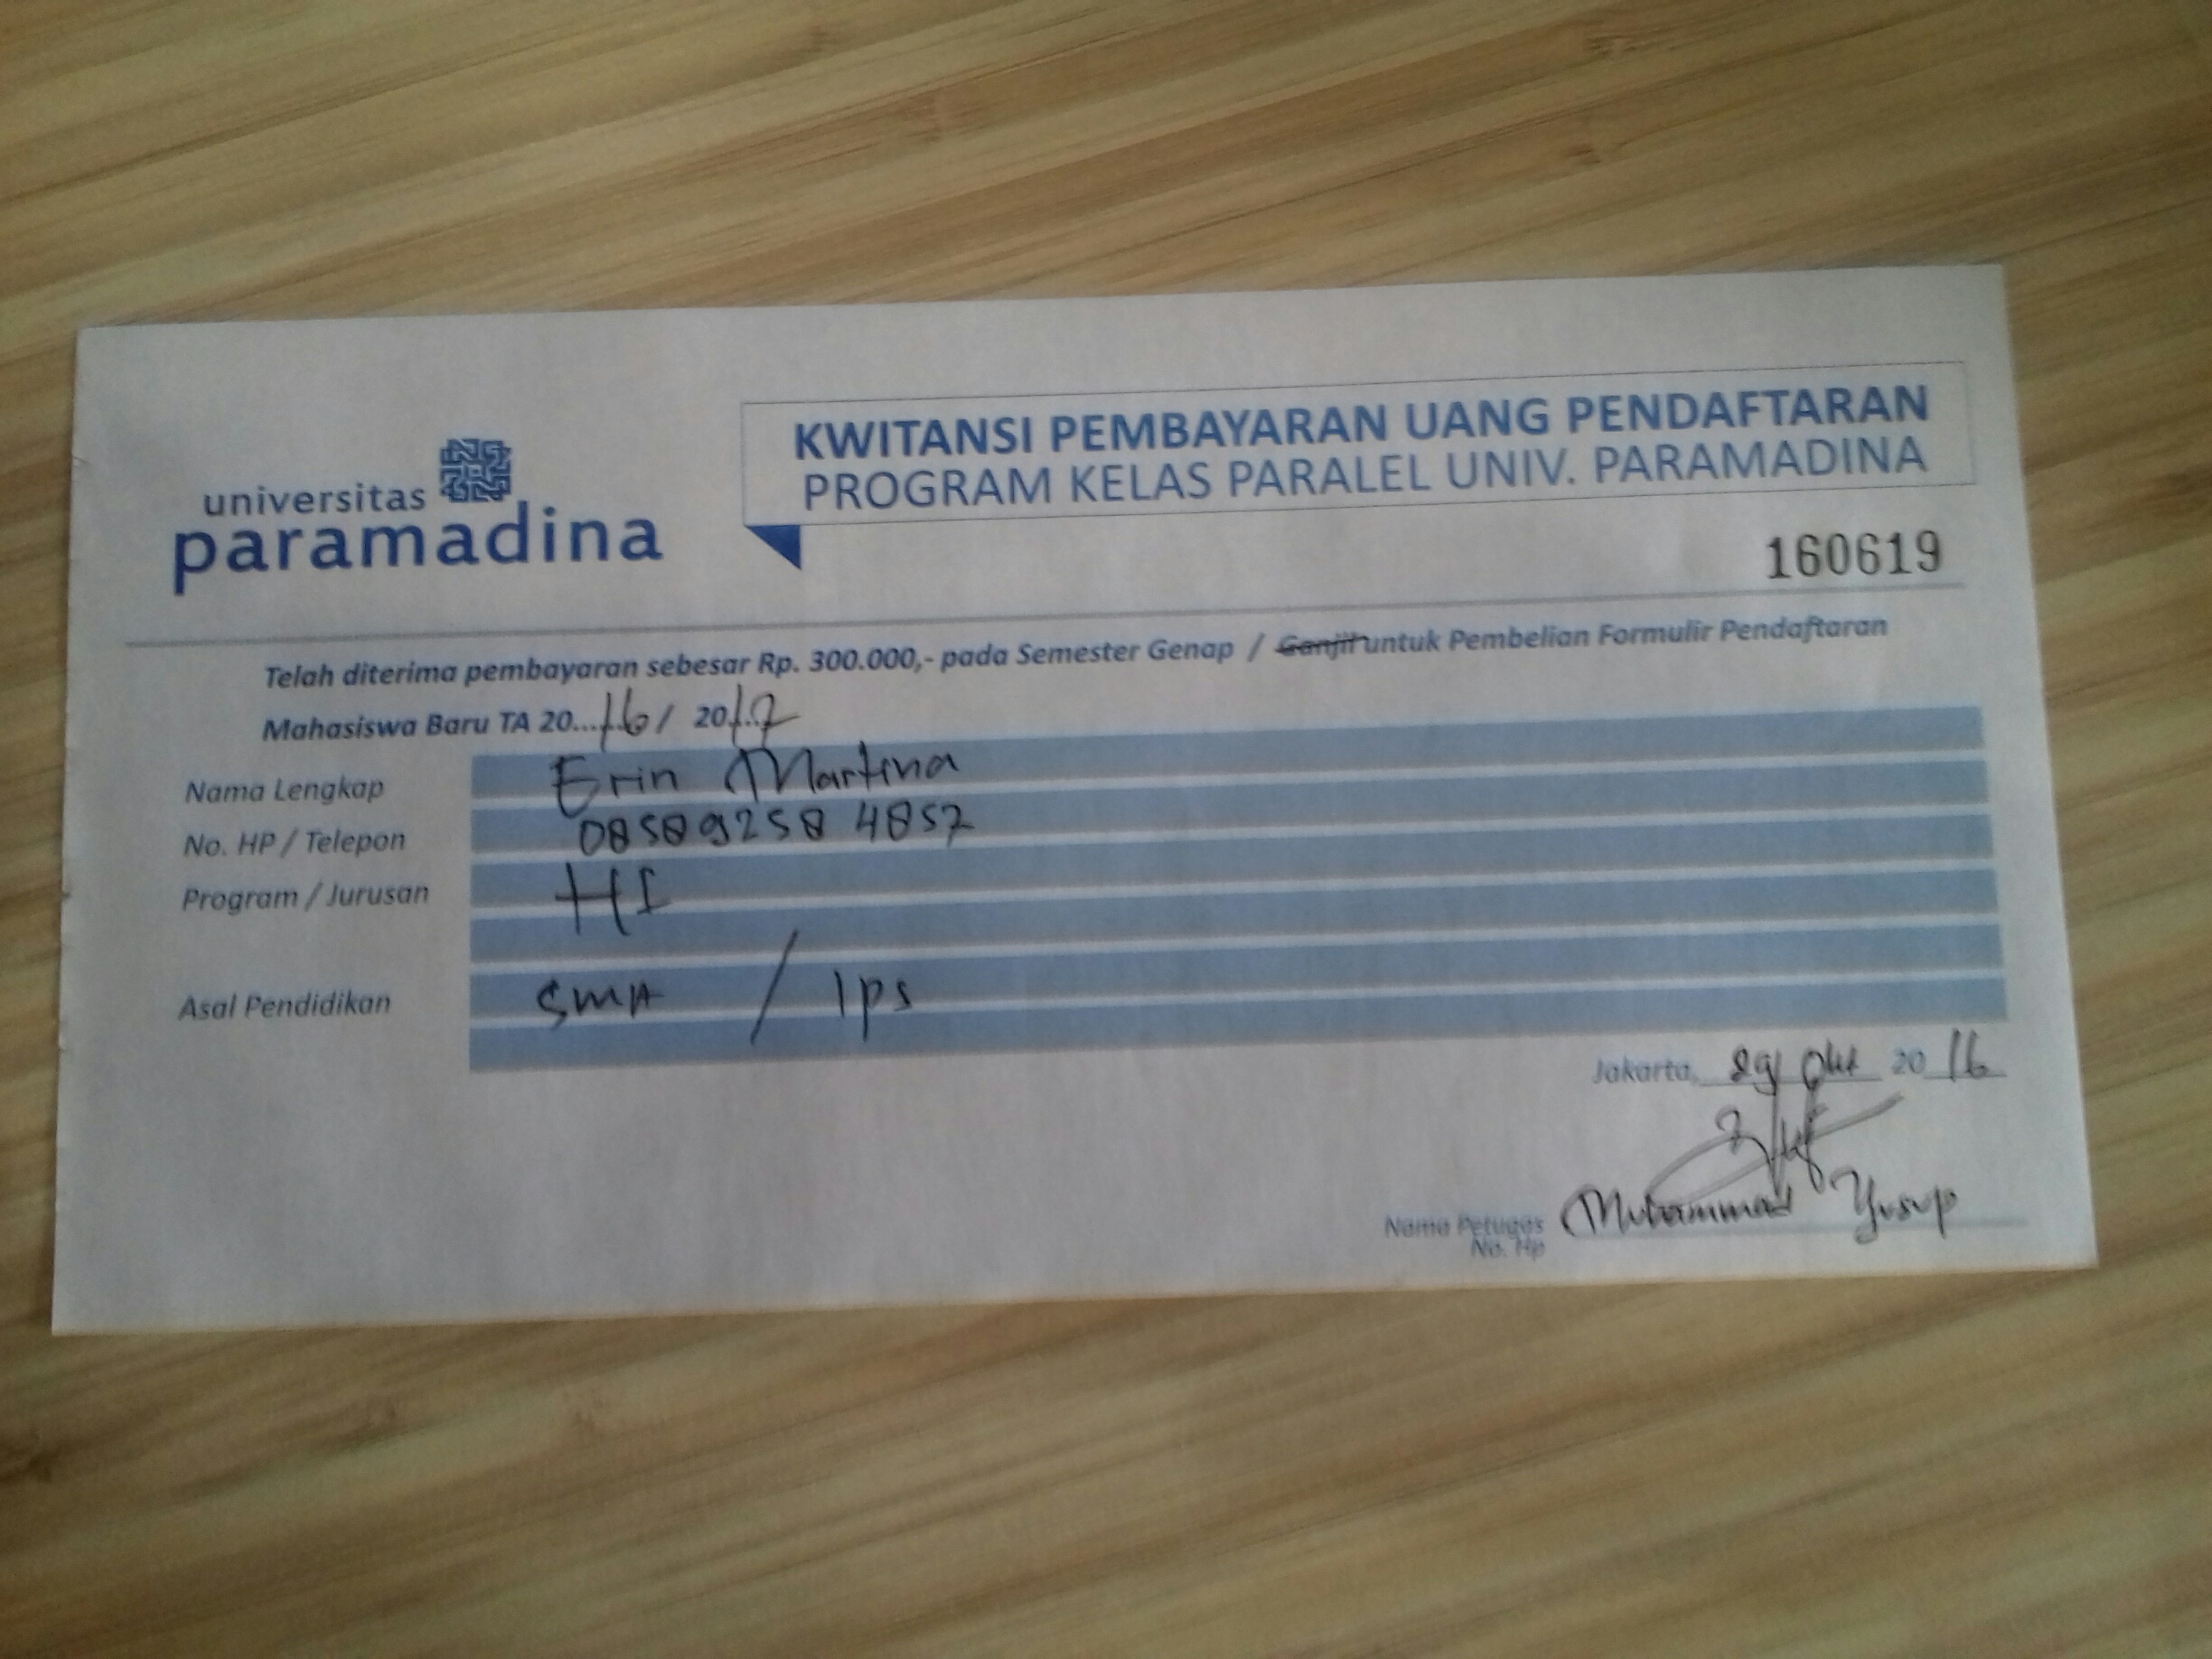 universitas
paramadina
KWITANSI PEMBAYARAN UANG PENDAFTARAN
PROGRAM KELAS PARALEL UNIV. PARAMADINA
160619
Telah diterima pembayaran sebesar Rp. 300.000,- pada Semester Genap / Ganjil untuk Pembelian Formulir Pendaftaran
Mahasiswa Baru TA 20...16/ 2017
Nama Lengkap Erin Martina
No. HP / Telepon 08589258 4857
Program / Jurusan HI
Asal Pendidikan SMA / IPS
Jakarta, 29 Okt 2016
Nama Petugas Muhammad Yusup
No. Hp